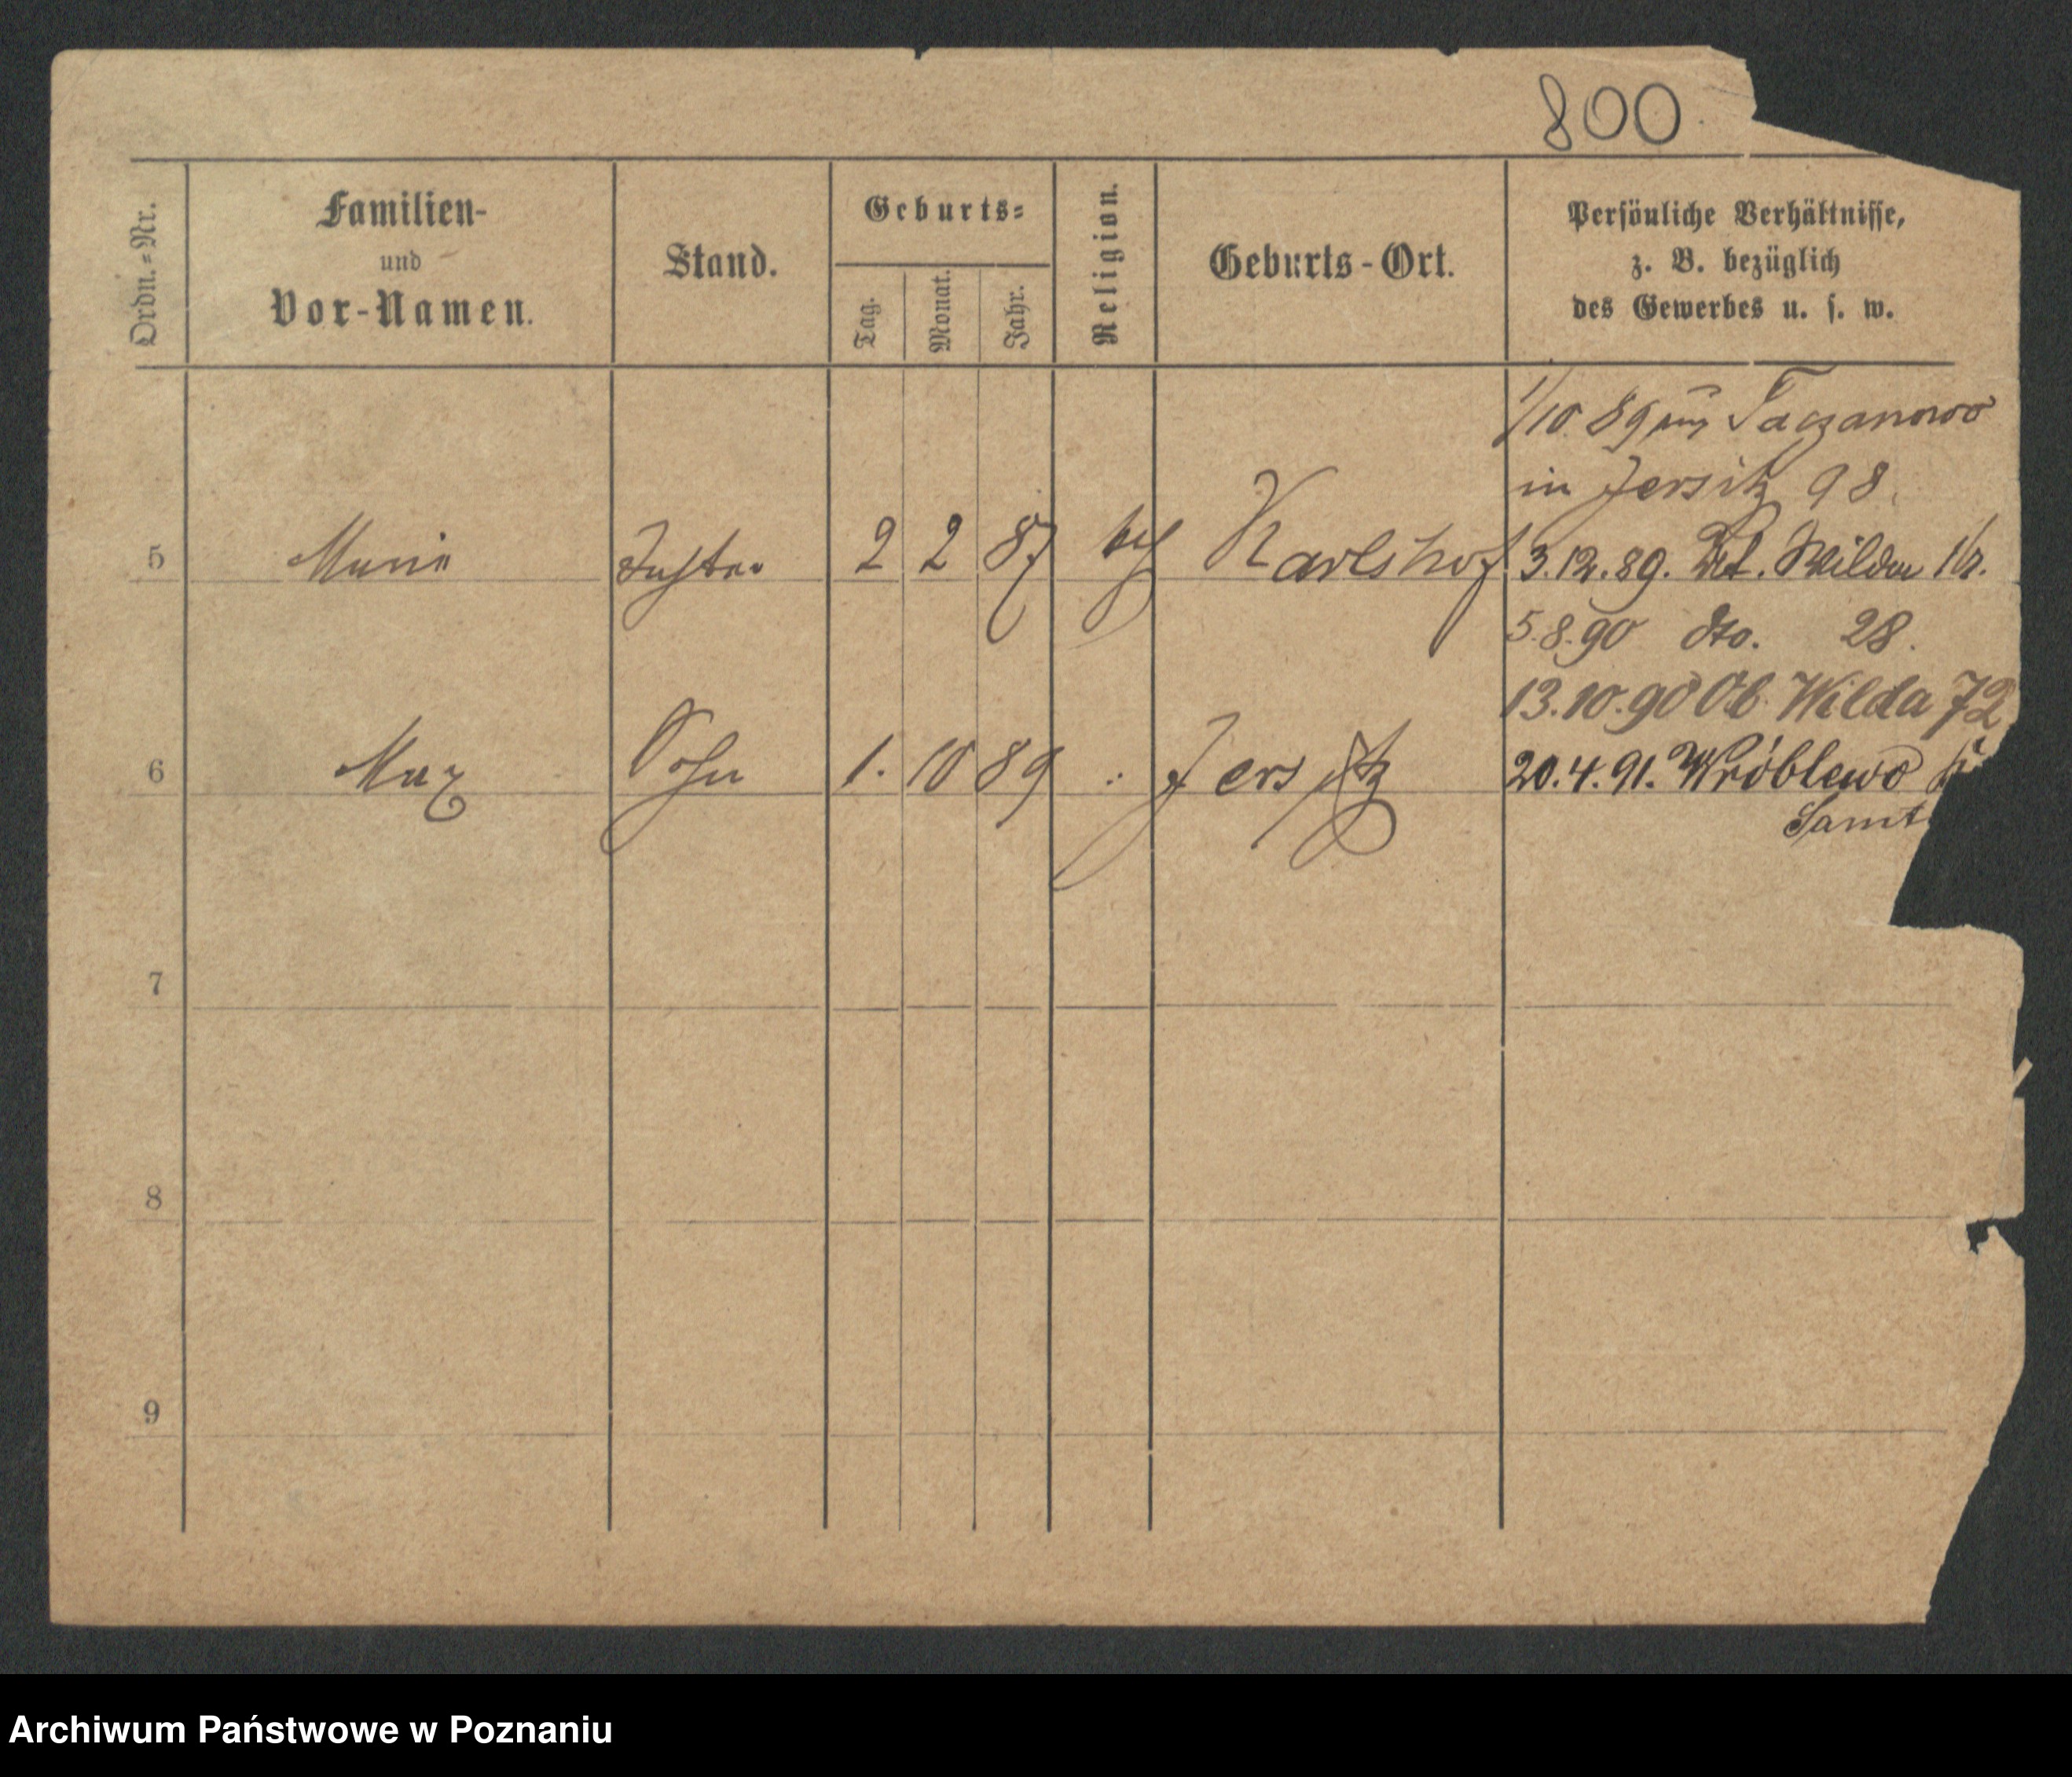 800
Ordn.=Nr.
Familien-
und
Vor-Namen.
Stand.
Geburts=
Tag.
Monat.
Jahr.
Religion.
Geburts-Ort.
Persönliche Verhältnisse,
z. B. bezüglich
des Gewerbes u. s. w.
1/10 89 Taczanowo
in Jersitz 98.
5 Marie Tochter 2 2 87 Karlshof 3.12.89. Wilda
5.8.90 dto. 28.
13.10.90 Ob. Wilda 72
6 Max Sohn 1. 10 89 Jersitz 20.4.91. Wróblewo
Samt
7
8
9
Archiwum Państwowe w Poznaniu